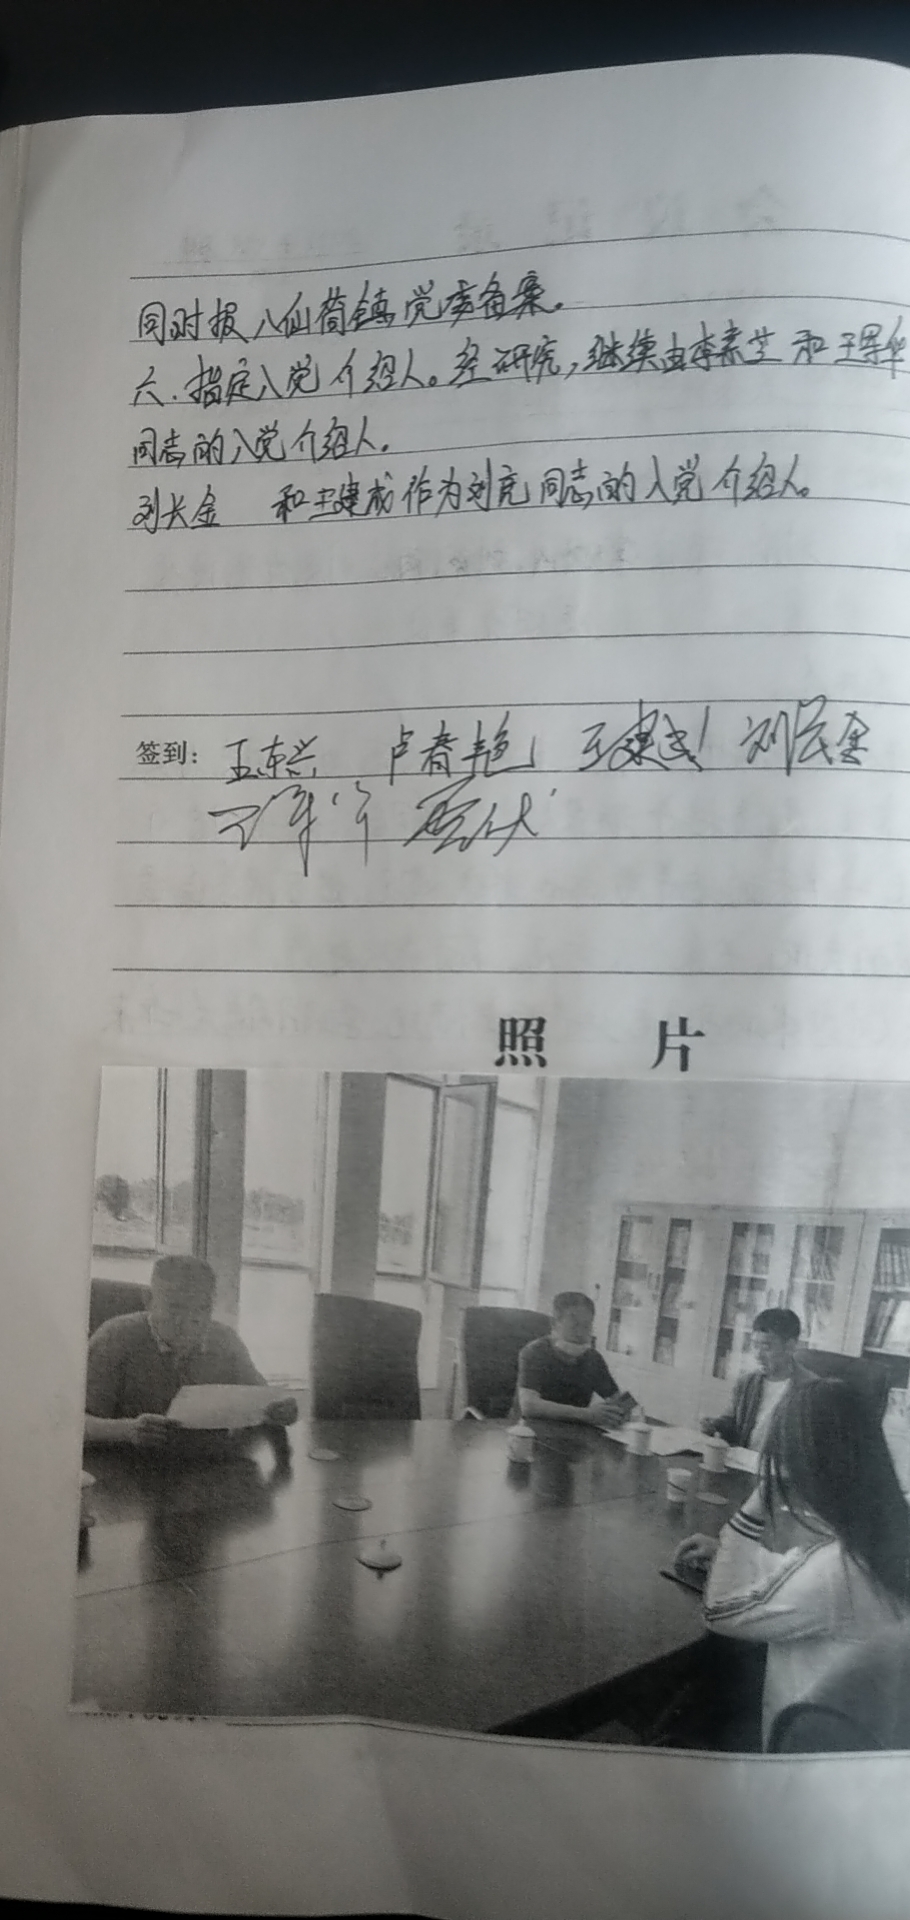 同时报八仙筒镇党委备案。
六.指定入党介绍人。经研究,继续由李素芝和王军华
同志的入党介绍人.
刘长金 和王建成作为刘亮同志的入党介绍人。
签到: 王东兴 卢春艳 王建成 刘长金
照 片